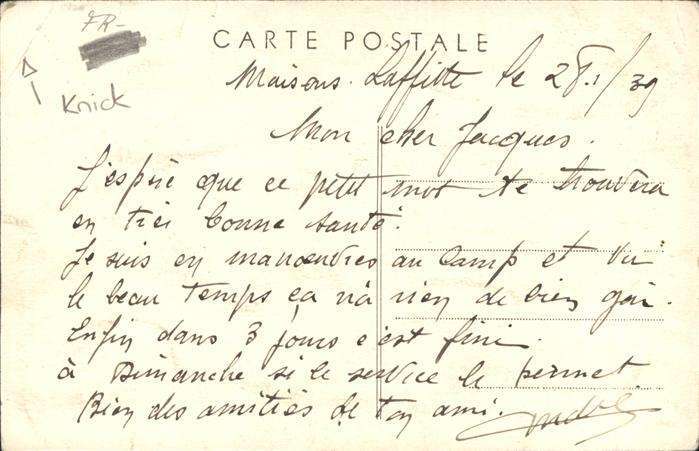 FR-
Knick
CARTE POSTALE
Maisons-Laffitte le 28.1/39
Mon cher Jacques.
J'espère que ce petit mot te trouvera
en très bonne santé.
Je suis en manoeuvres au camp et vu
le beau temps ça n'a rien de bien gai.
Enfin dans 3 jours c'est fini.
à Dimanche si le service le permet.
Bien des amitiés de ton ami.